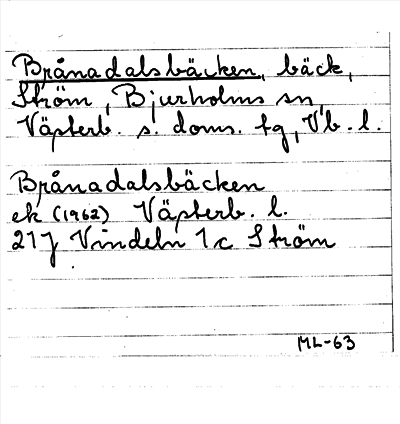 Brånadalsbäcken, bäck,
Ström, Bjurholms sn,
Västerb. s. doms. tg, Vb. l.
Brånadalsbäcken
ek (1962) Västerb. l.
21J Vindeln 1c Ström
ML-63